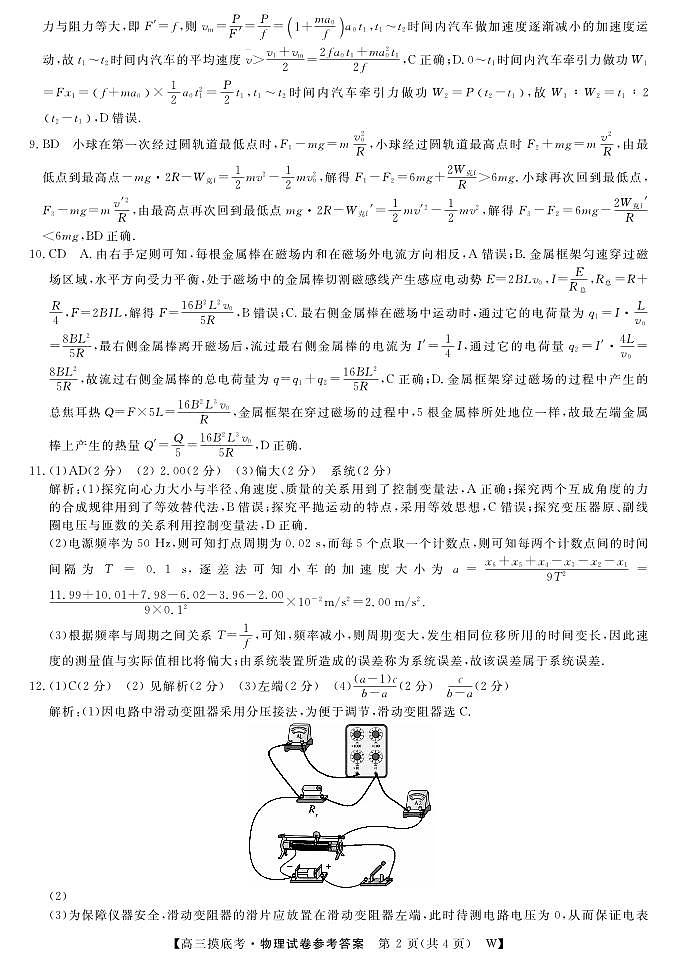 力与阻力等大,即 F′=f,则 vm=P/F′=P/f=(1+ma0/f)a0t1,t1~t2时间内汽车做加速度逐渐减小的加速度运
动,故 t1~t2时间内汽车的平均速度 v̄>(v1+vm)/2=(2fa0t1+ma0²t1)/2f,C 正确;D. 0~t1时间内汽车牵引力做功 W1
=Fx1=(f+ma0)×1/2 a0t1²=P/2 t1,t1~t2 时间内汽车牵引力做功 W2=P(t2-t1),故 W1∶W2=t1∶2
(t2-t1),D 错误.
9. BD 小球在第一次经过圆轨道最低点时,F1-mg=m v0²/R,小球经过圆轨道最高点时 F2+mg=m v²/R,由最
低点到最高点-mg·2R-W克f=1/2 mv²-1/2 mv0²,解得 F1-F2=6mg+2W克f/R>6mg. 小球再次回到最低点,
F3-mg=m v′²/R,由最高点再次回到最低点 mg·2R-W克f′=1/2 mv′²-1/2 mv²,解得 F3-F2=6mg-2W克f′/R
<6mg,BD 正确.
10. CD A. 由右手定则可知,每根金属棒在磁场内和在磁场外电流方向相反,A 错误;B. 金属框架匀速穿过磁
场区域,水平方向受力平衡,处于磁场中的金属棒切割磁感线产生感应电动势 E=2BLv0,I=E/R总,R总=R+
R/4,F=2BIL,解得 F=16B²L²v0/5R,B 错误;C. 最右侧金属棒在磁场中运动时,通过它的电荷量为 q1=I·L/v0
=8BL²/5R,最右侧金属棒离开磁场后,流过最右侧金属棒的电流为 I′=1/4 I,通过它的电荷量 q2=I′·4L/v0=
8BL²/5R,故流过右侧金属棒的总电荷量为 q=q1+q2=16BL²/5R,C 正确;D. 金属框架穿过磁场的过程中产生的
总焦耳热 Q=F×5L=16B²L³v0/R,金属框架在穿过磁场的过程中,5 根金属棒所处地位一样,故最左端金属
棒上产生的热量 Q′=Q/5=16B²L³v0/5R,D 正确.
11. (1)AD(2 分) (2)2.00(2 分) (3)偏大(2 分) 系统(2 分)
解析:(1)探究向心力大小与半径、角速度、质量的关系用到了控制变量法,A 正确;探究两个互成角度的力
的合成规律用到了等效替代法,B 错误;探究平抛运动的特点,采用等效思想,C 错误;探究变压器原、副线
圈电压与匝数的关系利用控制变量法,D 正确.
(2)电源频率为 50 Hz,则可知打点周期为 0.02 s,而每 5 个点取一个计数点,则可知每两个计数点间的时间
间隔为 T = 0.1 s,逐差法可知小车的加速度大小为 a = (x6+x5+x4-x3-x2-x1)/9T² =
(11.99+10.01+7.98-6.02-3.96-2.00)/(9×0.1²)×10⁻² m/s²=2.00 m/s².
(3)根据频率与周期之间关系 T=1/f,可知,频率减小,则周期变大,发生相同位移所用的时间变长,因此速
度的测量值与实际值相比将偏大;由系统装置所造成的误差称为系统误差,故该误差属于系统误差.
12. (1)C(2 分) (2)见解析(2 分) (3)左端(2 分) (4)(a-1)c/(b-a)(2 分) c/(b-a)(2 分)
解析:(1)因电路中滑动变阻器采用分压接法,为便于调节,滑动变阻器选 C.
A2
Rx
- +
(2)
(3)为保障仪器安全,滑动变阻器的滑片应放置在滑动变阻器左端,此时待测电路电压为 0,从而保证电表
【高三摸底考·物理试卷参考答案 第 2 页(共 4 页) W】